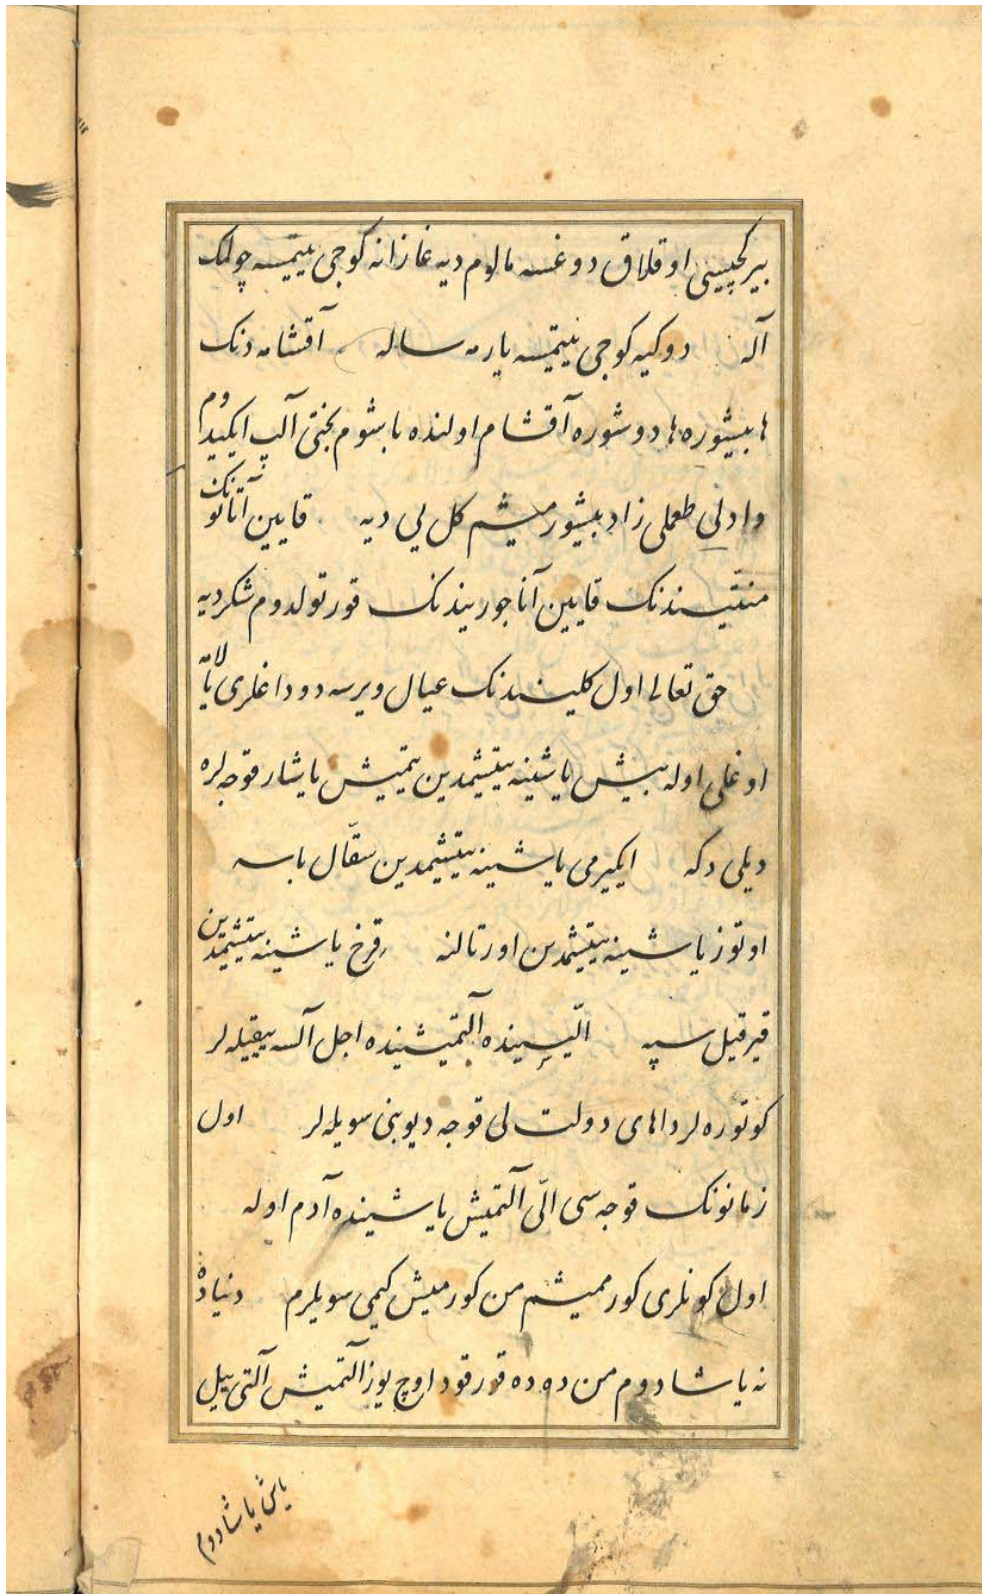 بیر کچیسی اوقلاق دوغسه مالوم دیه غازانه کوجی یتمسه چولمک
آله دوکیه کوجی یتمسه یارمه ساله آقشامه دنک
ها بیشوره ها دوشوره آقشام اولنده باشوم بختی آلپ ایکیدوم
وادلی طعملی زاد بیشورمیشم کل یی دیه قایین آتانونک
منتیسندنک قایین آنا جوریندنک قورتولدوم شکر دیه
حق تعالا اول کلیندنک عیال ویرسه دوداغلری یالاته
اوغلی اوله بیش یاشینه ییتیشمدین یتمیش یاشار قوجه لره
دیلی دکه ایکیرمی یاشینه ییتیشمدین سقّال باسه
اوتوز یاشینه ییتیشمدین اورتالنه قرخ یاشینه ییتیشمدین
قیرقیل سپه الّیسینده آلتمیشینده اجل آلسه ییقیله لر
کوتوره لر داهای دولت لی قوجه دیوبنی سویله لر اول
زمانونک قوجه سی الّی آلتمیش یاشینده آدم اوله
اول کونلری کورممیشم من کورمیش کیمی سویلرم دنیاده
نه یاشادوم من ده ده قورقود اوچ یوز آلتمیش آلتی ییل
یاش یاشادوم